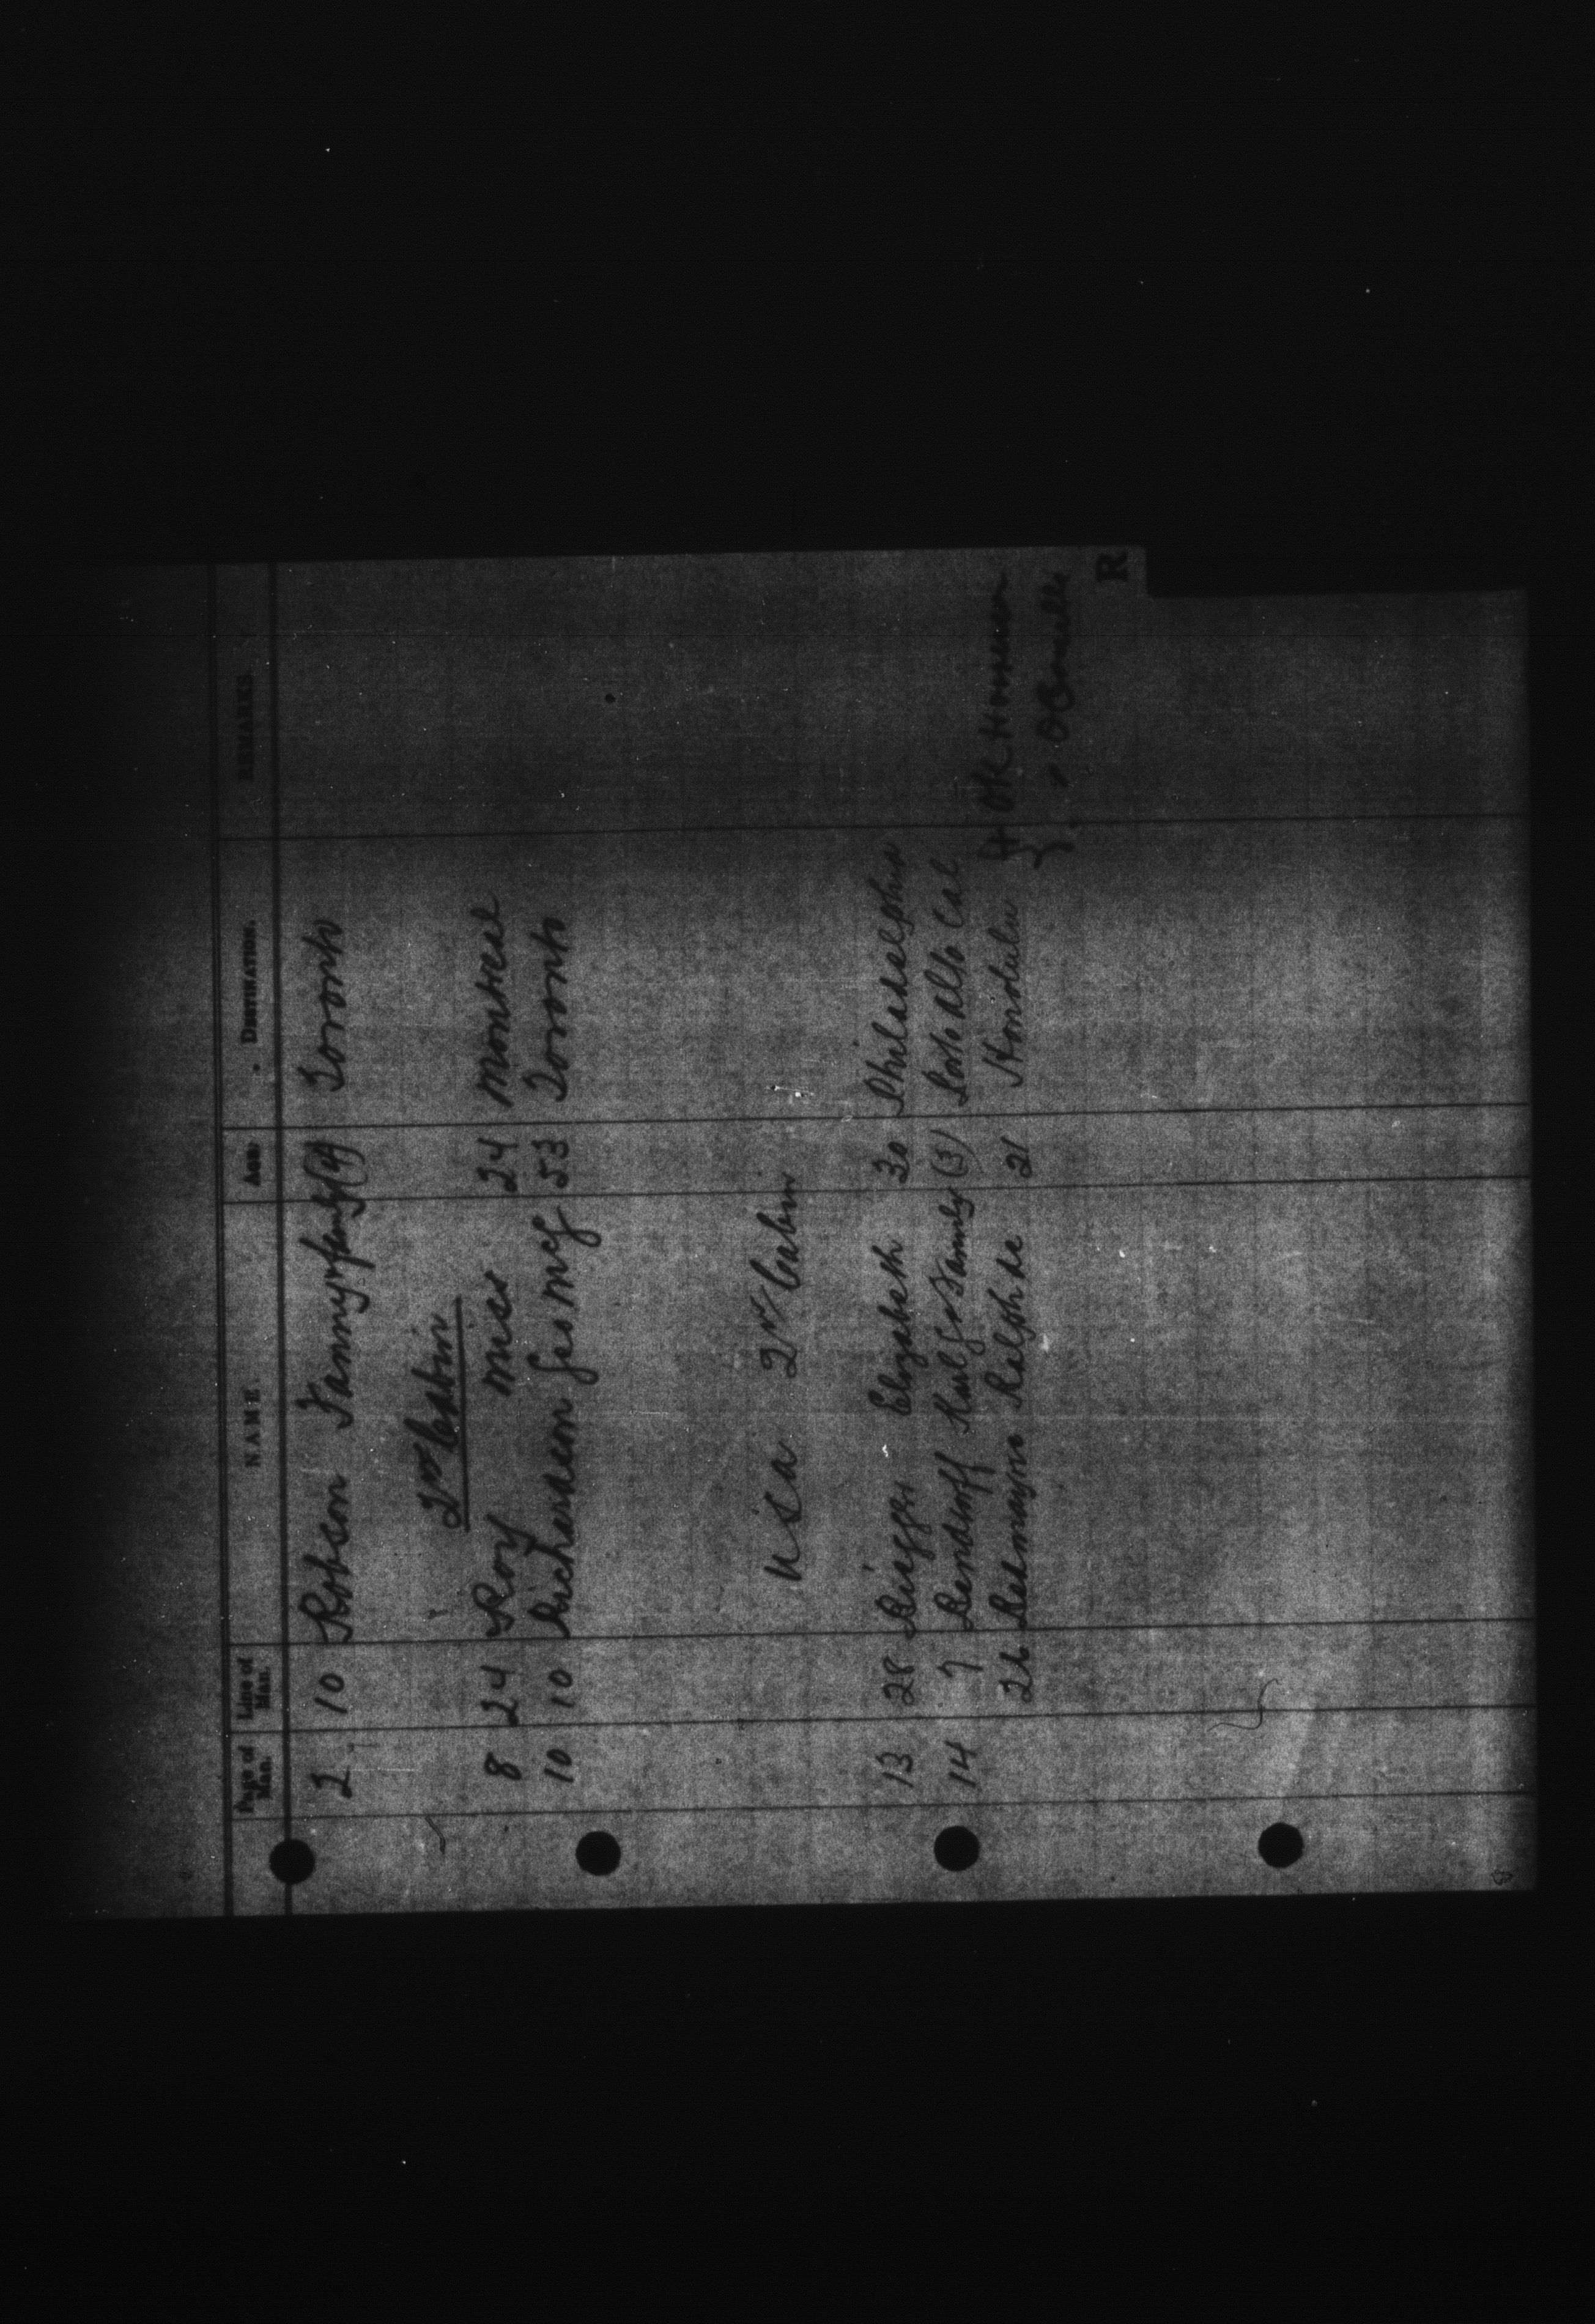 Page of Man. Line of Man. NAME. AGE. DESTINATION. REMARKS.
2 10 Robson Fanny & family (4) Toronto
2nd Cabin
8 24 Roy Miss 24 Montreal
10 10 Richardson Geo McG 53 Toronto
USA 2nd Cabin
13 28 Elizabeth 30 Philadelphia
14 7 Rendorff Karl G & Family (3) Palo Alto Cal
26 Redmayne Ralph de 21 Honolulu
R